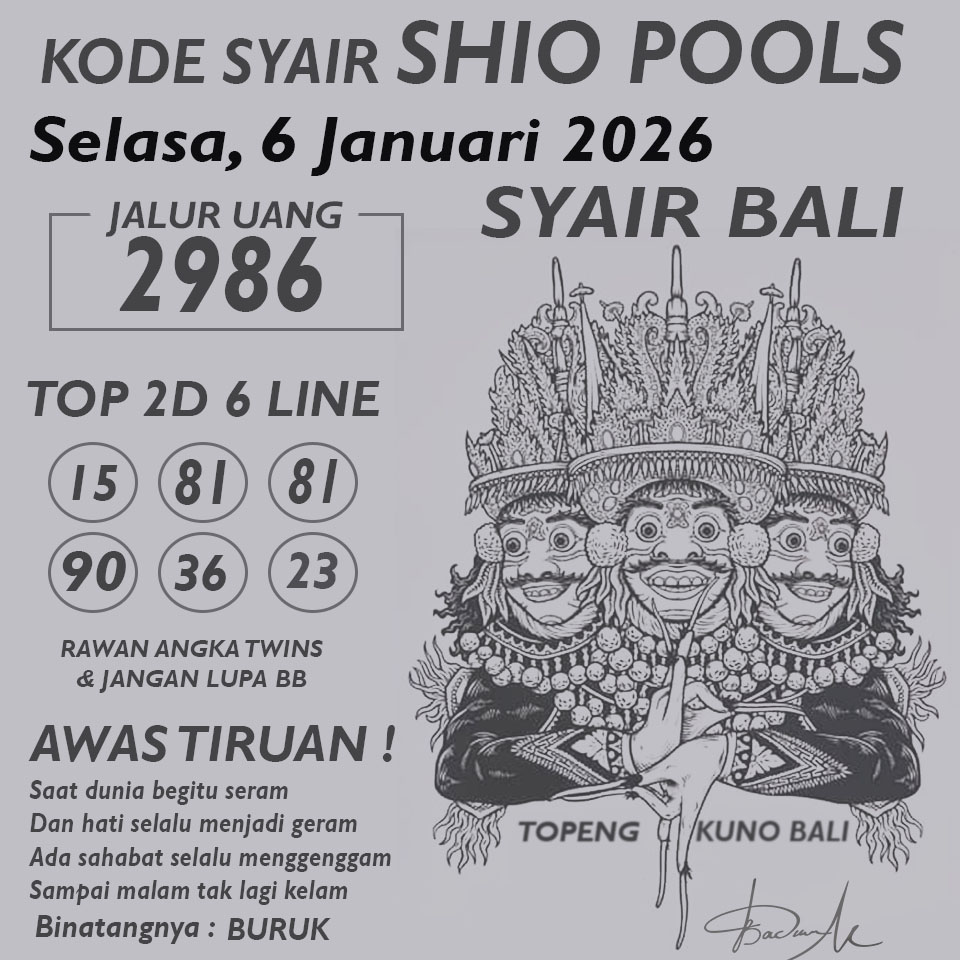 KODE SYAIR SHIO POOLS
Selasa, 6 Januari 2026
SYAIR BALI
JALUR UANG
2986
TOP 2D 6 LINE
15 81 81
90 36 23
RAWAN ANGKA TWINS
& JANGAN LUPA BB
AWAS TIRUAN !
Saat dunia begitu seram
Dan hati selalu menjadi geram
Ada sahabat selalu menggenggam
Sampai malam tak lagi kelam
Binatangnya : BURUK
TOPENG KUNO BALI